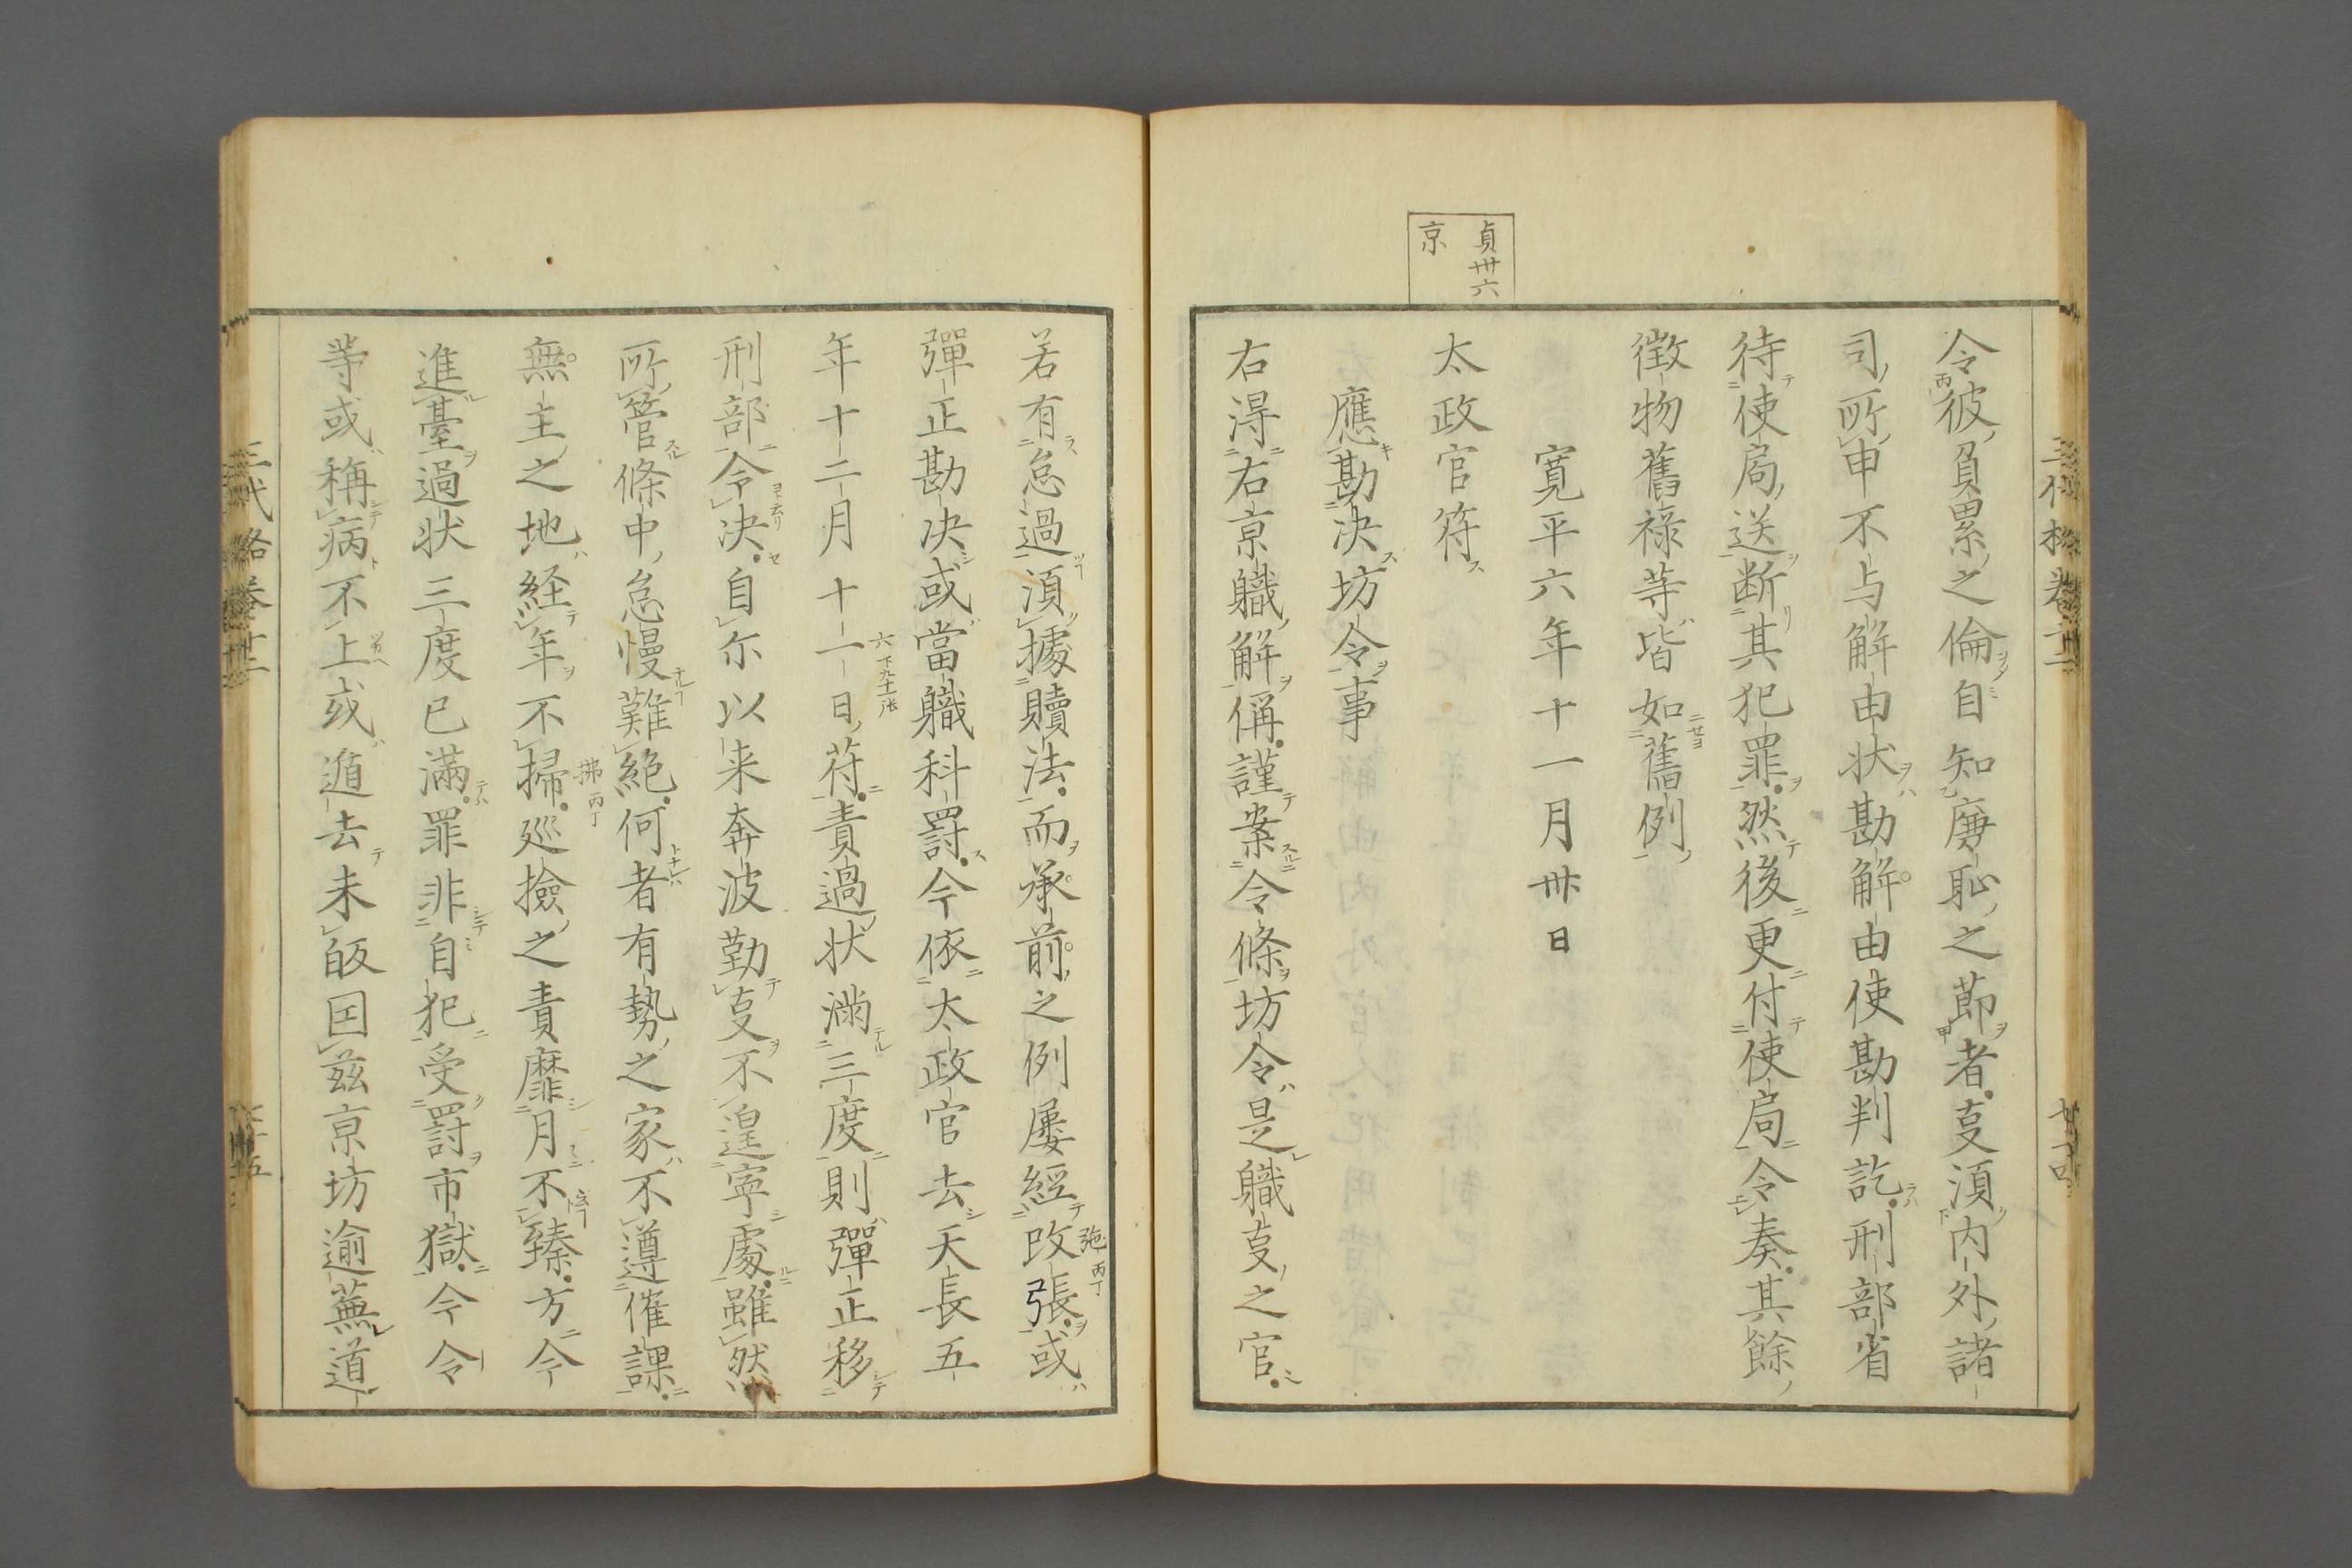 貞卅六
京
令彼負累之倫自知廉恥之節者叓湏内外諸
司所申不与解由状勘解由使勘判訖刑部省
待使局送断其犯罪然後更付使局令奏其餘
徴物舊禄等皆如舊例
寛平六年十一月卅日
太政官符
應勘決坊令事
右得右京職解偁謹案令條坊令是職叓之官
若有怠過湏據贖法而承前之例屢經改張或
弛丙丁
彈正勘决或當職科罸今依太政官去天長五
年十二月十一日符責過状満三度則彈正移
刑部令决自尓以来奔波勤叓不遑寧處雖然
所管條中怠慢難絶何者有勢之家不遵催課
無主之地経年不掃巡撿之責靡月不臻方今
拂丙丁
進臺過状三度已滿罪非自犯受罸市獄今令
等或稱病不上或遁去未皈囯茲京坊逾蕪道